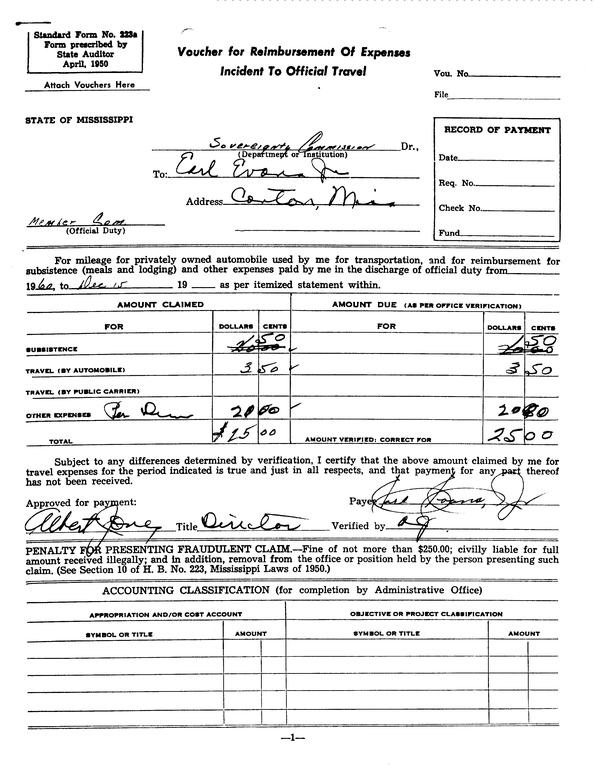 Standard Form No. 223a
Form prescribed by
State Auditor
April, 1950
Attach Vouchers Here
Voucher for Reimbursement Of Expenses
Incident To Official Travel
Vou. No.
File
STATE OF MISSISSIPPI
RECORD OF PAYMENT
Date
Req. No.
Check No.
Fund
Sovereignty Commission Dr.,
(Department or Institution)
To: Earl Evans Jr
Address Canton, Miss
Member Com
(Official Duty)
For mileage for privately owned automobile used by me for transportation, and for reimbursement for
subsistence (meals and lodging) and other expenses paid by me in the discharge of official duty from
1960, to Dec 15 19 as per itemized statement within.
AMOUNT CLAIMED AMOUNT DUE (AS PER OFFICE VERIFICATION)
FOR DOLLARS CENTS FOR DOLLARS CENTS
SUBSISTENCE 1 50 1 50
TRAVEL (BY AUTOMOBILE) 3 50 3 50
TRAVEL (BY PUBLIC CARRIER)
OTHER EXPENSES Per Diem 20 00 20 00
TOTAL $25 00 AMOUNT VERIFIED: CORRECT FOR 25 00
Subject to any differences determined by verification, I certify that the above amount claimed by me for
travel expenses for the period indicated is true and just in all respects, and that payment for any part thereof
has not been received.
Approved for payment: Payee Earl Evans, Jr
Albert Jones Title Director Verified by aJ.
PENALTY FOR PRESENTING FRAUDULENT CLAIM.—Fine of not more than $250.00; civilly liable for full
amount received illegally; and in addition, removal from the office or position held by the person presenting such
claim. (See Section 10 of H. B. No. 223, Mississippi Laws of 1950.)
ACCOUNTING CLASSIFICATION (for completion by Administrative Office)
APPROPRIATION AND/OR COST ACCOUNT OBJECTIVE OR PROJECT CLASSIFICATION
SYMBOL OR TITLE AMOUNT SYMBOL OR TITLE AMOUNT
—1—